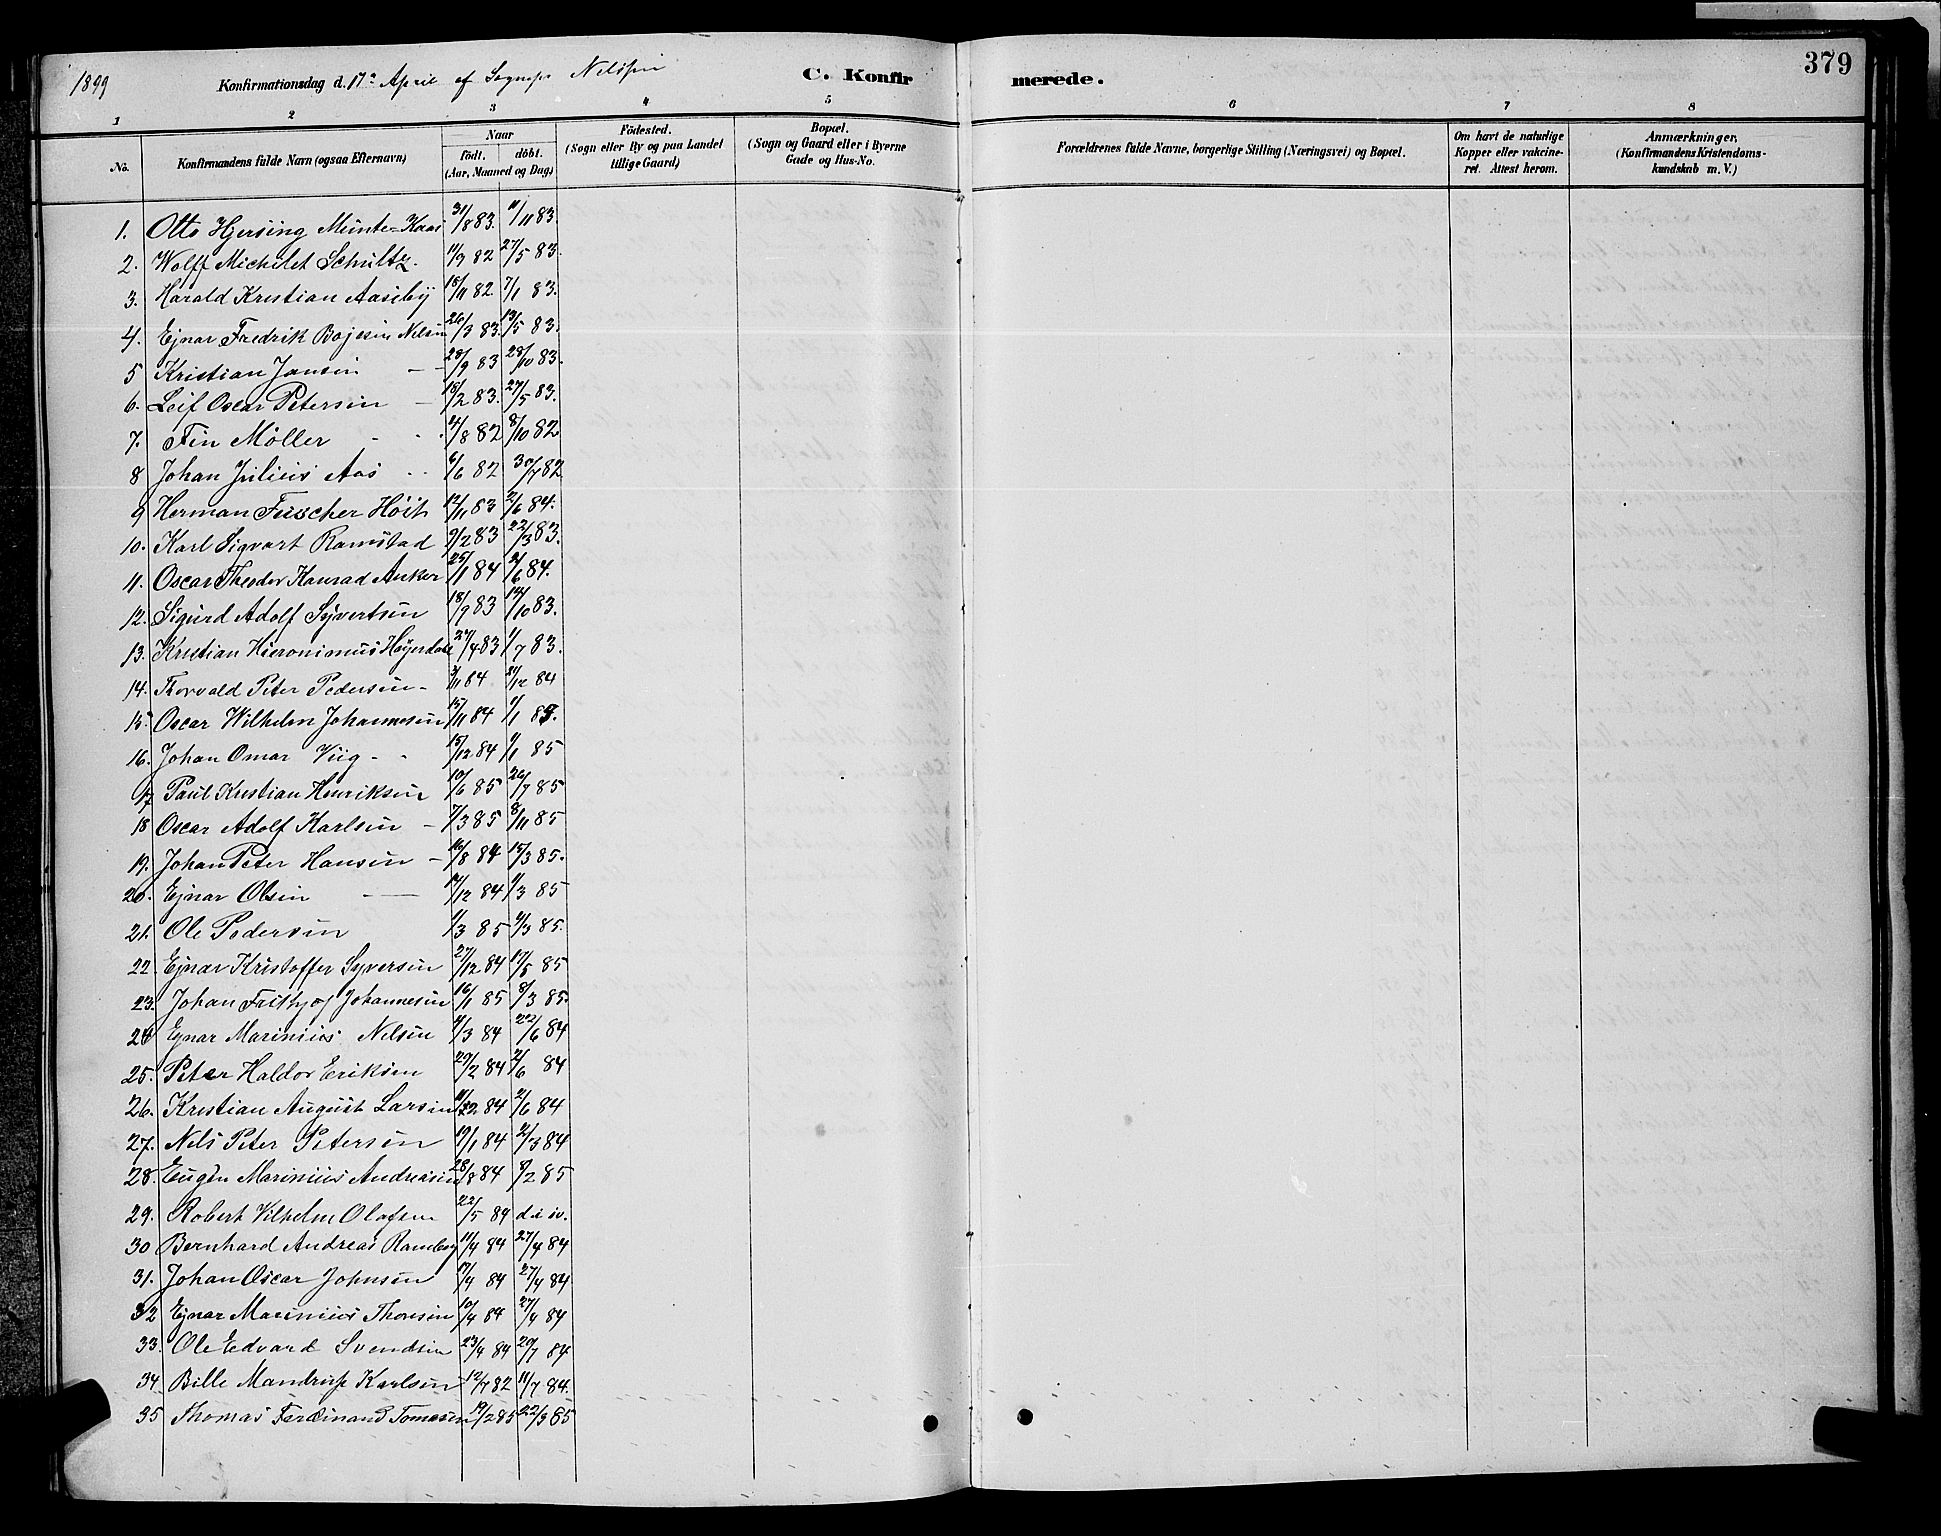 379
1899 Konfirmationsdag d. 17de April af Sognepr Nilssen C. Konfirmerede.
1 2 3 4 5 6 7 8
No. Konfirmandens fulde Navn (ogsaa Efternavn) Naar födt. döbt. (Aar, Maaned og Dag) Födested. (Sogn eller By og paa Landet tillige Gaard) Bopæl. (Sogn og Gaard eller i Byerne Gade og Hus-No. Forældrenes fulde Navne, borgerlige Stilling (Næringsvei) og Bopæl. Om havt de naturlige Kopper eller vakcineret. Attest herom. Anmærkninger. (Konfirmandens Kristendomskundskab m. V.)
1. Otto Hjersing Munte-Kaas 31/8 83. 11/11 83.
2. Wolff Michelet Schultz. 11/9 82 27/5 83.
3. Harald Kristian Aaseby 18/11 82 7/1 83.
4. Ejnar Fredrik Bojesen Nilsen 26/3 83. 13/5 83.
5 Kristian Jansen 28/9 83 28/10 83.
6. Leif Oscar Petersen 18/2 83. 27/5 83.
7. Fin Möller 4/8 82 8/10 82
8 Johan Julius Aas 6/6 82 30/7 82
9 Herman Fuscher Höst 12/11 83 2/6 84.
10. Karl Sigvart Ramstad 9/2 83 22/3 83.
11. Oscar Theodor Konrad Anker 25/1 84 2/6 84.
12. Sigurd Adolf Syvertsen 18/9 83 14/10 83.
13. Kristian Hieronimus Høyerdal 24/4 83 1/7 83.
14. Thorvald Peter Pedersen 3/11 84 21/12 84
15. Oscar Wilhelm Johannesen 15/11 84 1/1 85.
16. Johan Omar Viig 15/12 84 1/1 85
17 Paul Kristian Henriksen 10/6 85 26/7 85
18 Oscar Adolf Karlsen 7/3 85 8/11 85
19. Johan Peter Hansen 16/8 84 15/3 85.
20. Ejnar Olsen 14/12 84 1/3 85
21. Ole Pedersen 1/3 85 4/3 85.
22 Ejnar Kristoffer Syversen 27/12 84 17/5 85
23. Johan Frithjof Johannesen 16/1 85 8/3 85.
24 Ejnar Marinius Nelsen 4/3 84 22/6 84
25. Peter Haldor Eriksen 29/2 84 2/6 84
26. Kristian August Larsen 84 2/6 84
27. Nels Peter Petersen 19/1 84 2/3 84
28. Eugen Marinius Andreasen 28/8 84 8/2 85
29. Robert Vilhelm Olafsen 22/5 84
30 Bernhard Andreas Ramberg 11/4 84 27/4 84
31. Johan Oscar Johnsen 17/4 84 27/4 84
32 Ejnar Marinius Thoresen 10/4 84 27/4 84
33. Ole Edvard Svendsen 23/4 84 20/7 84
34. Bille Mandrup Karlsen 12/7 82 11/7 84.
35 Thomas Ferdinand Tomasen 19/2 85 22/3 85